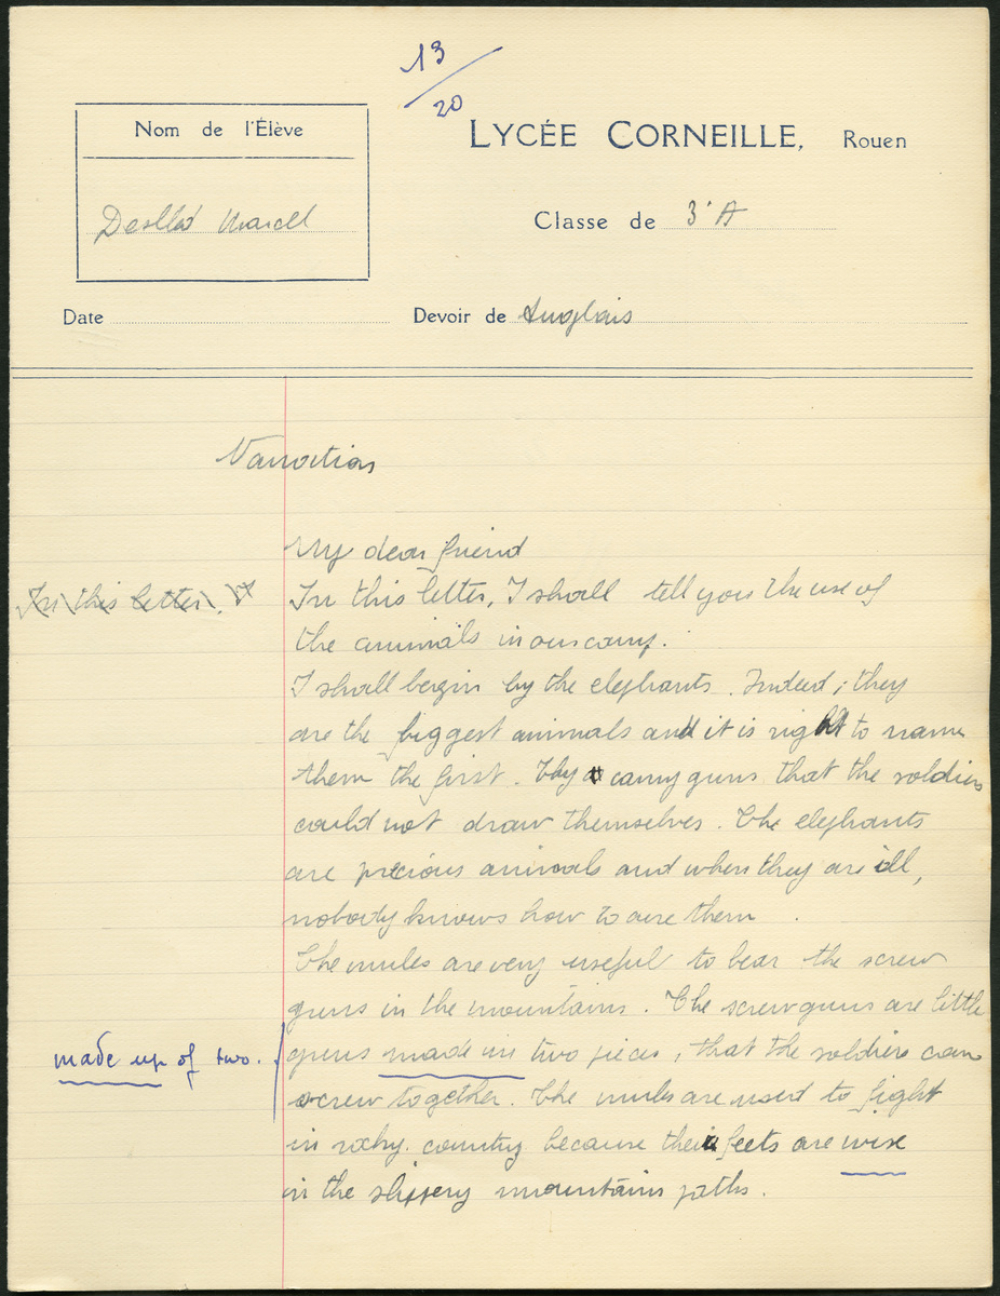 13/20
Nom de l'Élève
LYCÉE CORNEILLE, Rouen
Marcel
Classe de 3e A
Date
Devoir de Anglais
Narration
My dear friend
In this letter, I
In this letter, I shall tell you the use of
the animals in our camp.
I shall begin by the elephants. Indeed, they
are the biggest animals and it is right to name
them the first. They carry guns that the soldiers
could not draw themselves. The elephants
are precious animals and when they are ill,
nobody knows how to cure them.
The mules are very useful to bear the screw
guns in the mountains. The screwguns are little
made up of two.
guns made in two pieces, that the soldiers can
screw together. The mules are used to fight
in rocky country because their feets are wise
in the slippery mountains paths.